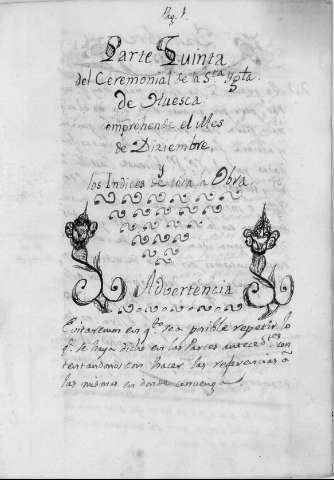 Pag. 1.
Parte Quinta
del Ceremonial de la Sta. Ygla.
de Huesca
comprehende el Mes
de Diziembre,
y
los Indices de toda la Obra
Advertencia
Evitaremos en qto. sea posible repetir lo
q. se haya dicho en las Partes anteced.tes con
tentandonos con hacer las referencias a
las mismas en donde convenga